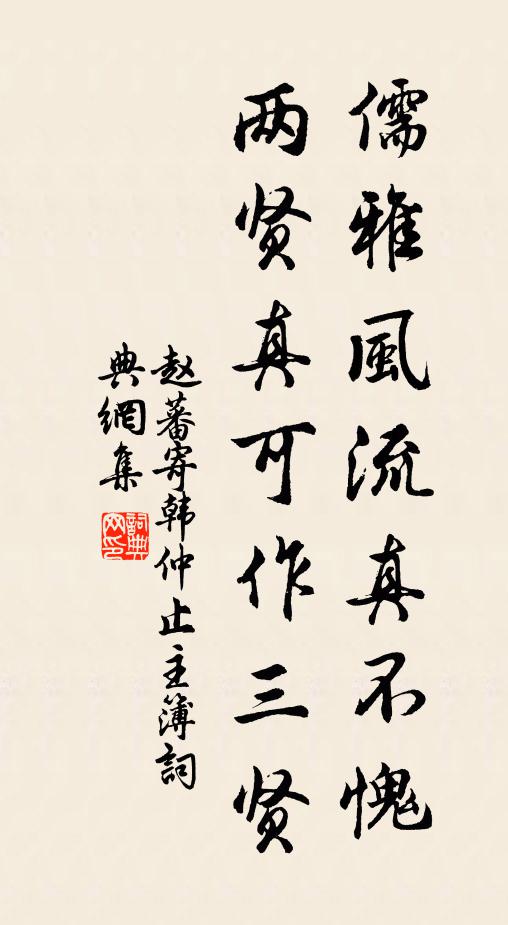 儒雅風流真不愧
两贤真可作三贤
赵蕃寄韩仲止主簿詞
典網集
詞典網印